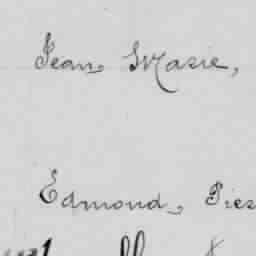 Jean Marie,
Edmond, Pier